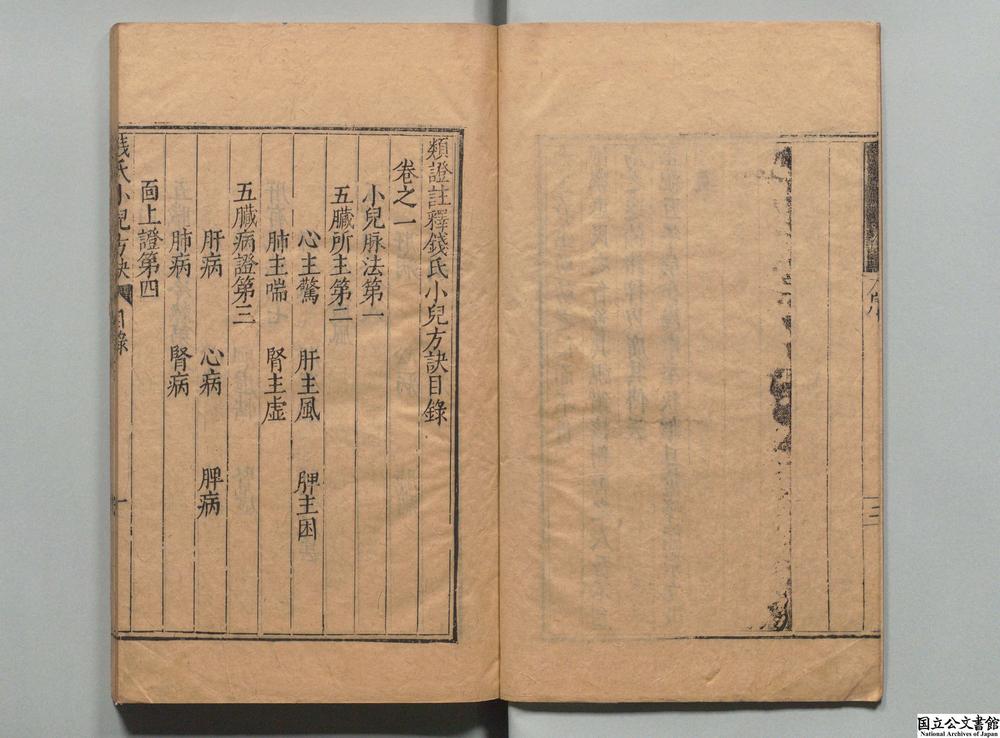 三
類證註釋錢氏小兒方訣目錄
卷之一
小兒脉法第一
五臟所主第二
心主驚 肝主風 脾主困
肺主喘 腎主虛
五臟病證第三
肝病 心病 脾病
肺病 腎病
面上證第四
錢氏小兒方訣 目錄 一
国立公文書館
National Archives of Japan